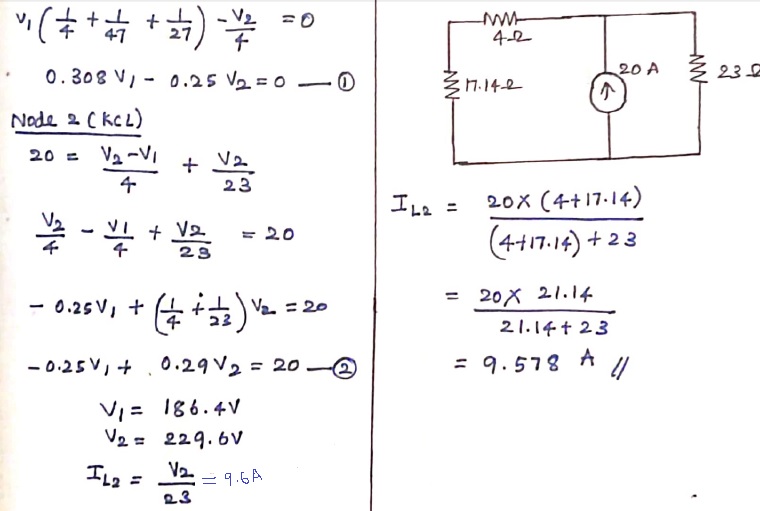 V₁ (1/4 + 1/47 + 1/27) - V₂/4 = 0
0.308 V₁ - 0.25 V₂ = 0 — ①
Node 2 (KCL)
20 = (V₂-V₁)/4 + V₂/23
V₂/4 - V₁/4 + V₂/23 = 20
- 0.25V₁ + (1/4 + 1/23) V₂ = 20
- 0.25V₁ + 0.29 V₂ = 20 — ②
V₁ = 186.4V
V₂ = 229.6V
I_L2 = V₂/23 = 9.6A
4Ω
17.14Ω
20 A
23 Ω
I_L2 = 20 X (4+17.14) / ((4+17.14) + 23)
= 20 X 21.14 / (21.14 + 23)
= 9.578 A //